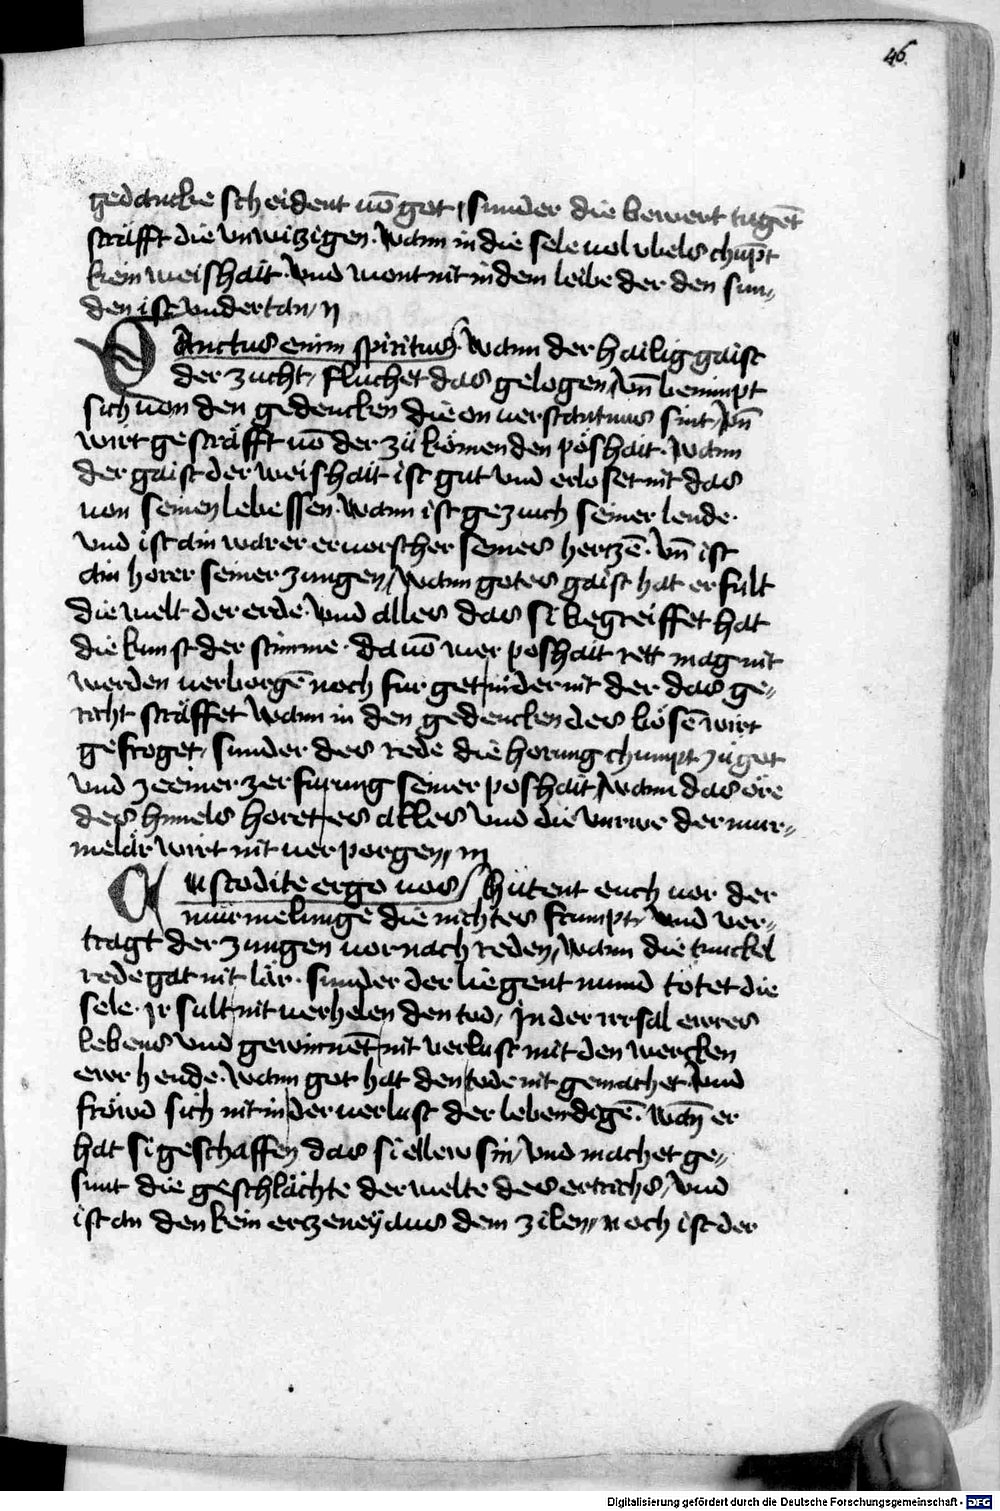 46.
gedancke scheident uō got / sunder die bewert tugēt
sträfft die vnwitzigen. Wann in die sele uol vbels chūpt
kein weishait. Vnd wont nit in dem leibe der den sun„
den ist vndertan, n
SAnctus enim spiritus. Wann der hailig gaist
der zucht, fluchet das gelogen, Vn̄ benimpt
sich uon den gedencken die on uerstantnus sint, Vn̄
wirt gesträfft uō der zů kömenden poshait. Wann
der gaist der weishait ist gut vnd erloset nit das
uon seinen lebssen. Wann ist gezuich seiner lende.
Vnd ist ain warer eruorscher seines hertzē. Vn̄ ist
ain horer seiner zungen, Wann gotes gaist hat erfült
die welt der erde. Vnd alles das si begreiffet hat
die kunst der stimme. da uō wer poshait rett mag nit
werden uerborgē noch fur get in der nit der das ge„
richt sträffet Wann in den gedencken des bösē wirt
gefroget, sunder des rede die horung chumpt zů got
vnd ze einer zerfurung seiner poshait, Wann das öre
des himels horet es alles vnd die vnrwe der mur„
melär wirt nit uerporgen, m
CUstodite ergo uos / Hütent euch uor der
murmelunge die nichtes frumpt, Vnd ver„
tragt der zungen uor nach reden, Wann die tunckel
rede gat nit lär. sunder der liegent mund tötet die
sele. Jr sult nit uerhelen den tod, Jn der irrsal ewres
lebens vnd gewinnēt nit verlust mit den wercken
ewr hende. Wann got hat den tode nit gemachet. Vnd
fröwd sich nit in der uerlust der lebendigē. Wan̄ er
hat si geschaffen das si ellew sin, Vnd machet ge„
sunt die geschlächte der welte des ertrichs, Vnd
ist an den kein erczeney aus dem zilen, noch ist der
Digitalisierung gefördert durch die Deutsche Forschungsgemeinschaft - DFG